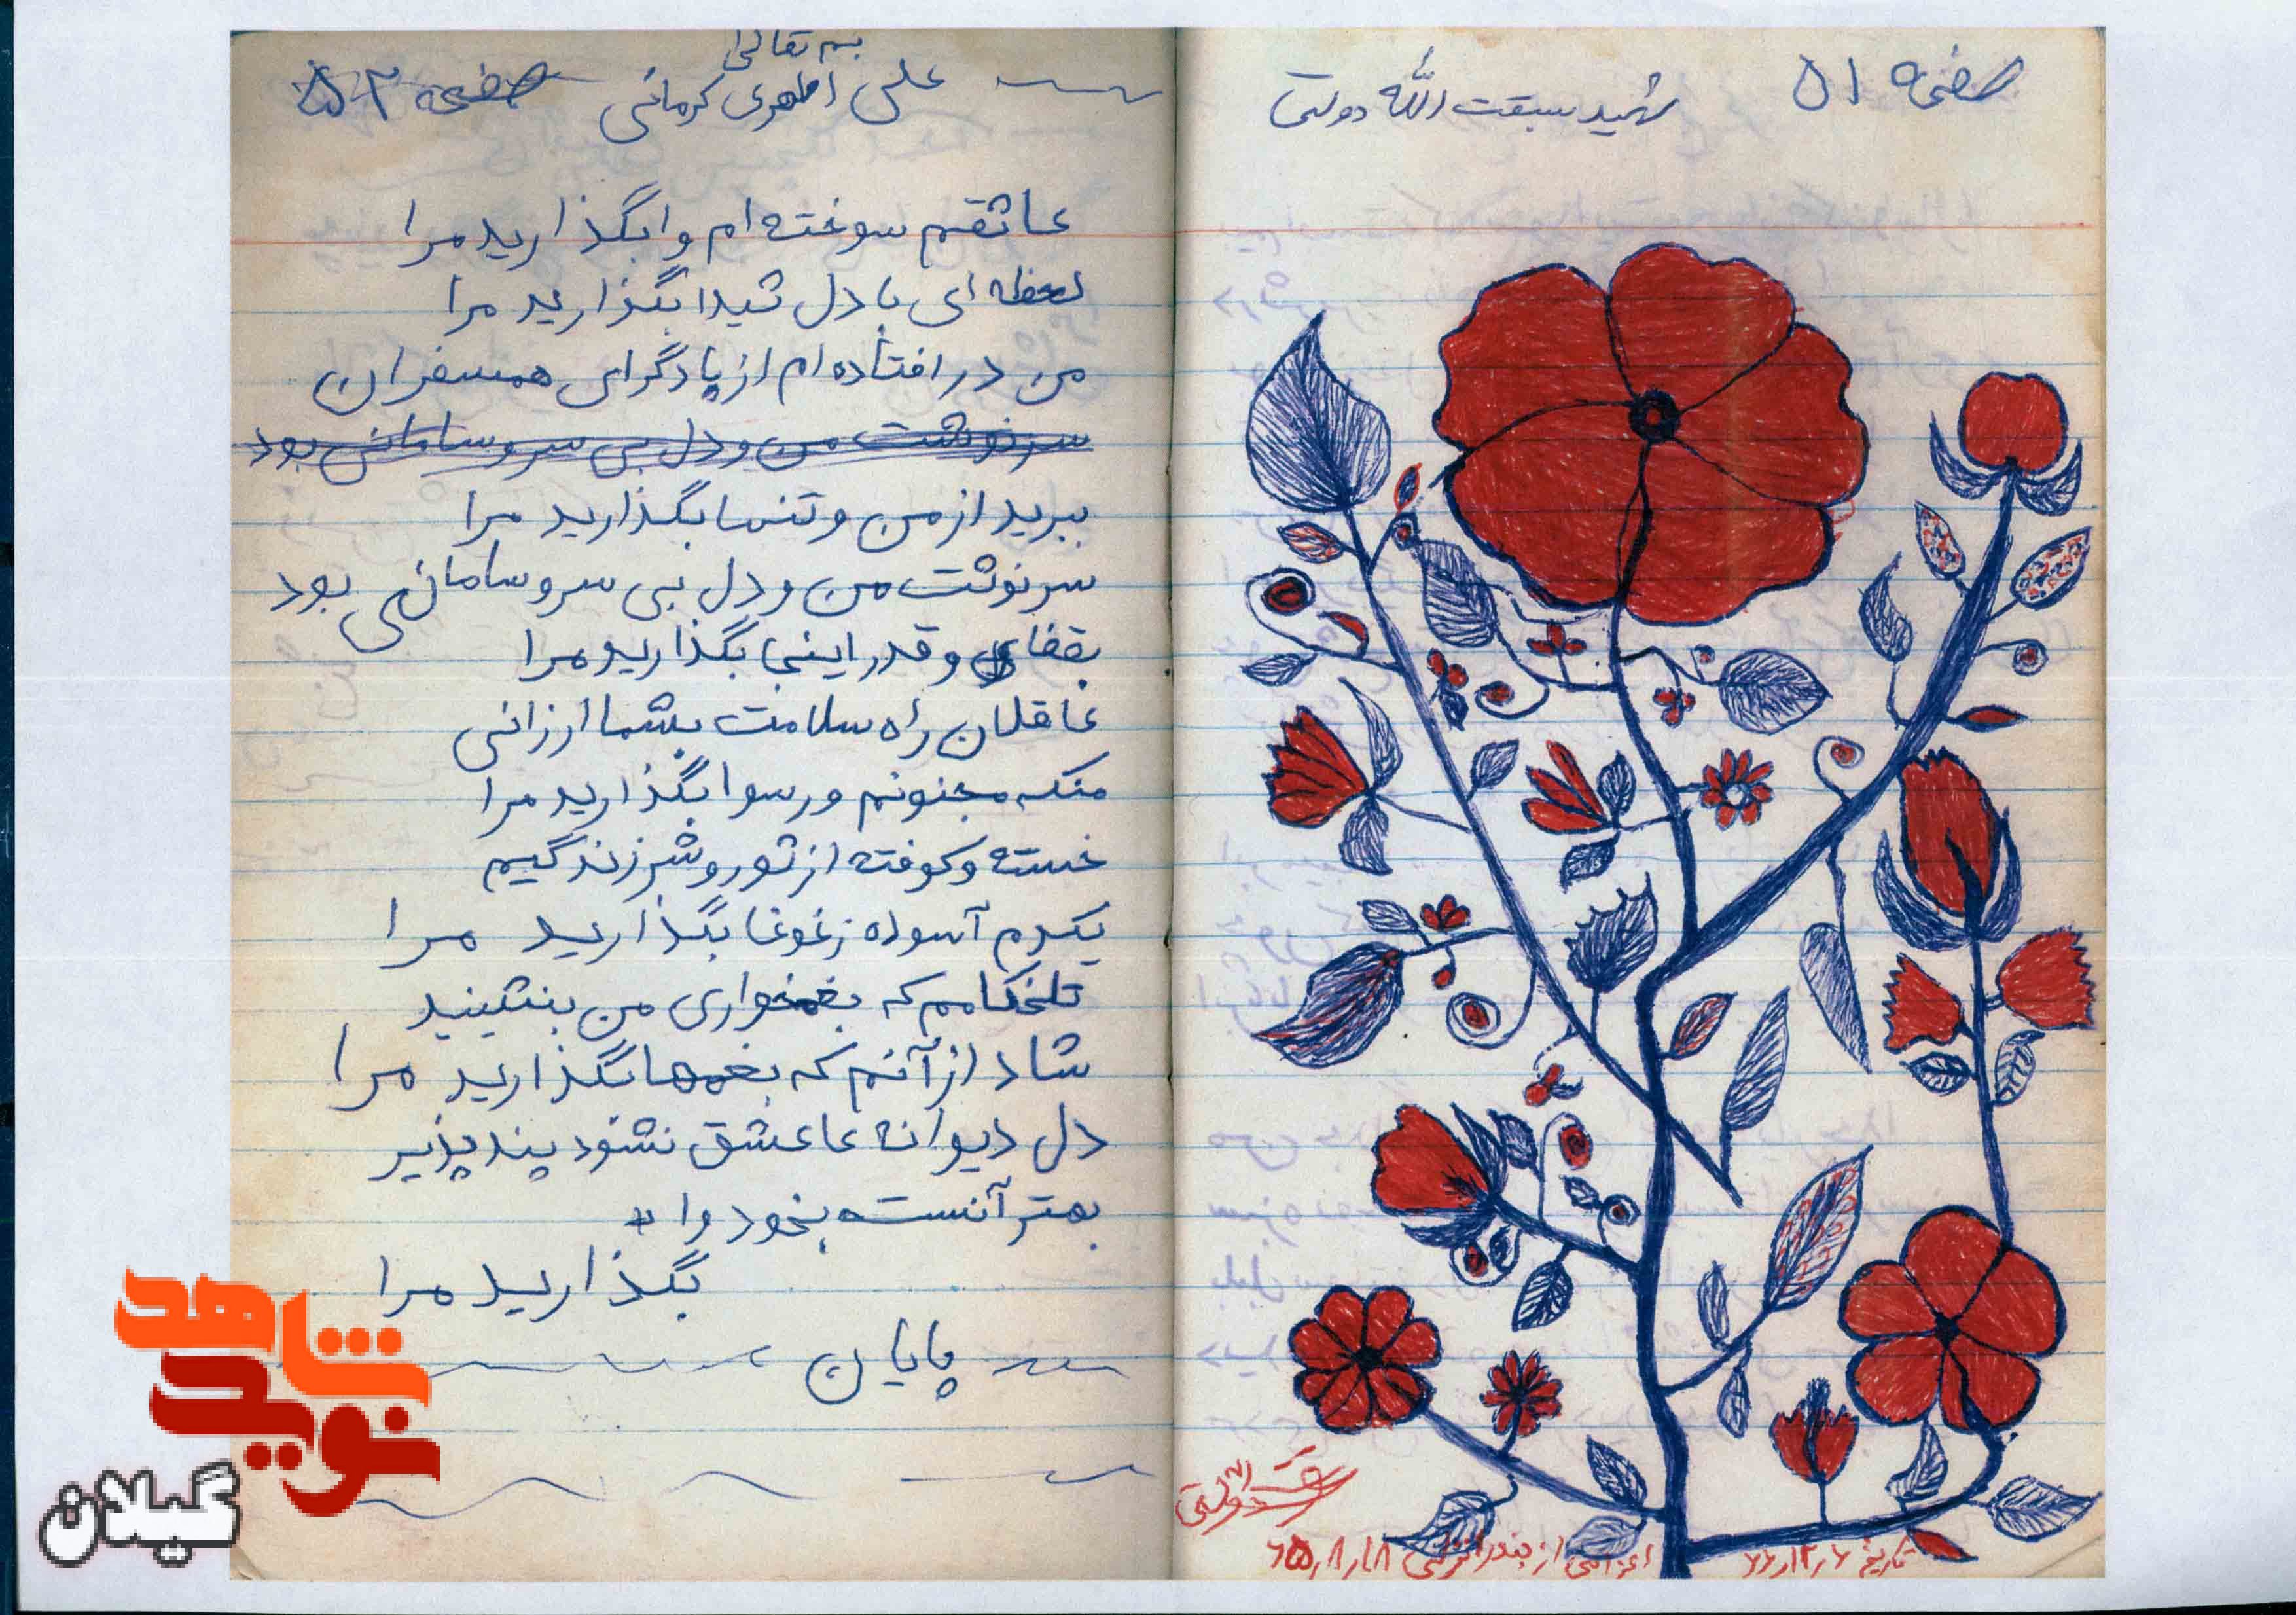 صفحه ۵۱
شهید سبقت الله دولتی
دولتی
تاریخ
اعزامی از بندرانزلی ۶۵٫۸٫۱۸
بسم تعالی
علی اطهری کرمانی
صفحه ۵۲
عاشقم سوخته ام وا بگذارید مرا
لحظه ای با دل شیدا بگذارید مرا
من در افتاده ام از پا دگر ای همسفران
سرنوشت من و دل بی سر و سامانی بود
ببرید از من و تنها بگذارید مرا
سرنوشت من و دل بی سر و سامانی بود
بقضای و قدر اینجا بگذارید مرا
عاقلان راه سلامت بشما ارزانی
منکه مجنونم و رسوا بگذارید مرا
خسته و کوفته از شور و شر زندگیم
یکدم آسوده ز غوغا بگذارید مرا
تلخکامم که بغمخواری من بنشینید
شاد از آنم که بغمها بگذارید مرا
دل دیوانه عاعشق نشود پند پذیر
بهتر آنست بخود وا
بگذارید مرا
پایان
شاهد
نوید
گیلان